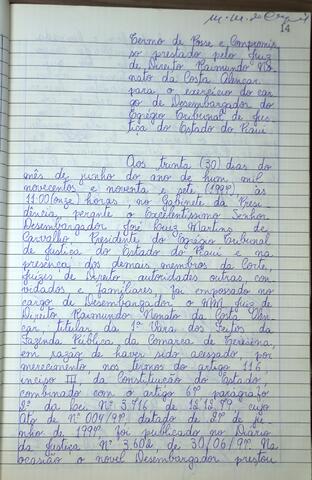 14
Termo de Posse e Compromis-
so prestado pelo Juiz
de Direito Raimundo No-
nato da Costa Alencar,
para o exercício do car-
go de Desembargador do
Egrégio Tribunal de Jus-
tiça do Estado do Piauí.
Aos trinta (30) dias do
mês de junho do ano de hum mil
novecentos e noventa e sete (1997), às
11:00 (onze) horas, no Gabinete da Presi-
dência, perante o Excelentíssimo Senhor
Desembargador José Luiz Martins de
Carvalho, Presidente do Egrégio Tribunal
de Justiça do Estado do Piauí e na
presença dos demais membros da Corte,
Juízes de Direito, autoridades outras con-
vidados e familiares foi empossado no
cargo de Desembargador o MM. Juiz de
Direito Raimundo Nonato da Costa Alen-
car, titular da 1ª Vara dos Feitos da
Fazenda Pública da Comarca de Teresina,
em razão de haver sido acessado, por
merecimento nos termos do artigo 116,
inciso III, da Constituição do Estado,
combinado com o artigo 67 parágrafo
2º da Lei Nº 3.716 de 12.12.79, cujo
Ato de Nº 004/97, datado de 27 de ju-
nho de 1997 foi publicado no Diário
da Justiça Nº 3.602, de 30/06/97. Na
ocasião o novel Desembargador prestou